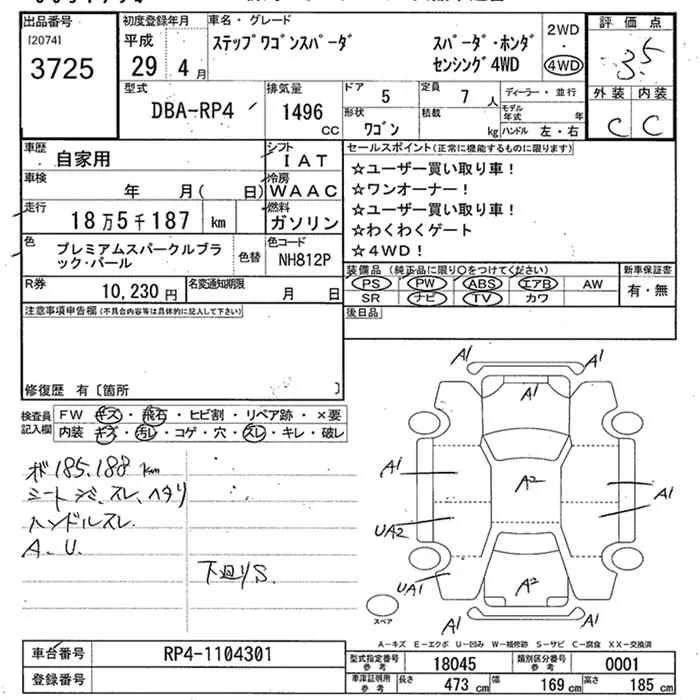 出品番号
[2074]
3725
初度登録年月
平成
29 4月
車名・グレード
ステップワゴンスパーダ
スパーダ・ホンダ
センシング4WD
2WD
・
4WD
評価点
3.5
外装 内装
C C
型式
DBA-RP4
排気量
1496
CC
ドア 5
定員 7 人
形状 ワゴン
積載 kg
ディーラー・並行
モデル年式 年
ハンドル 左・右
車歴
自家用
シフト
IAT
車検
年 月( 日)
冷房
WAAC
走行
18万5千187 km
燃料
ガソリン
色
プレミアムスパークルブラ
ック・パール
色替
色コード
NH812P
R券
10,230円
名変通知期限
月 日
セールスポイント(正常に機能するものに限ります)
☆ユーザー買い取り車!
☆ワンオーナー!
☆ユーザー買い取り車!
☆わくわくゲート
☆4WD!
装備品(純正品に限り○をつけてください)
PS PW ABS エアB AW
SR ナビ TV カワ
新車保証書
有・無
後日品
注意事項申告欄(不具合内容等は具体的に記入して下さい)
修復歴 有〔箇所 〕
検査員
記入欄
FW キズ・飛石・ヒビ割・リペア跡・×要
内装 キズ・汚レ・コゲ・穴・スレ・キレ・破レ
ボ185.188km
シート シミ、スレ、ヘタリ
ハンドルスレ
A.U.
下廻りS.
A1 A1
A1
A1 A2 A1
UA2
UA1 A2
A1 A1
スペア
A-キズ E-エクボ U-凹み W-補修跡 S-サビ C-腐食 XX-交換済
車台番号 RP4-1104301
登録番号
型式指定番号
参考
18045
類別区分番号
参考
0001
車庫証明用
参考
長さ 473 cm
幅 169 cm
高さ 185 cm